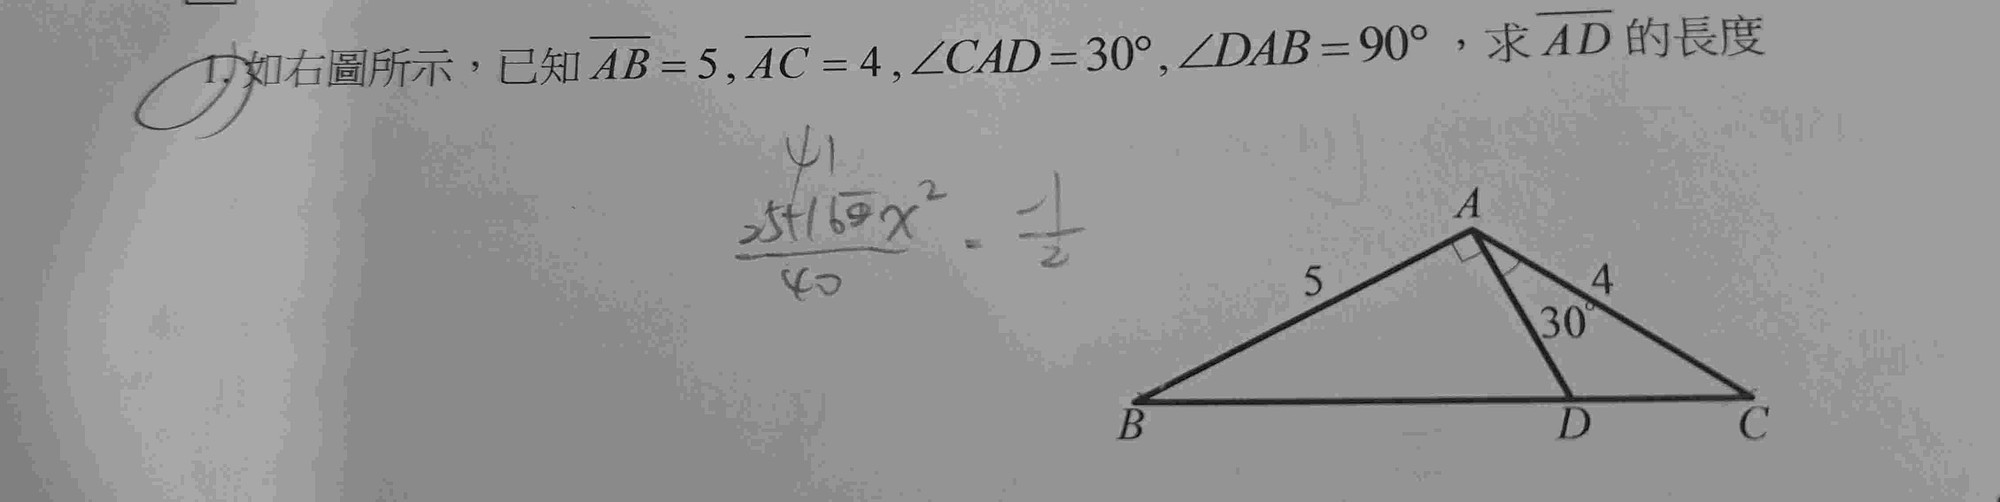 1. 如右圖所示，已知 AB = 5, AC = 4, ∠CAD = 30°, ∠DAB = 90°，求 AD 的長度
41
25+16-x² = -1
40 2
A
5
4
30°
B
D
C